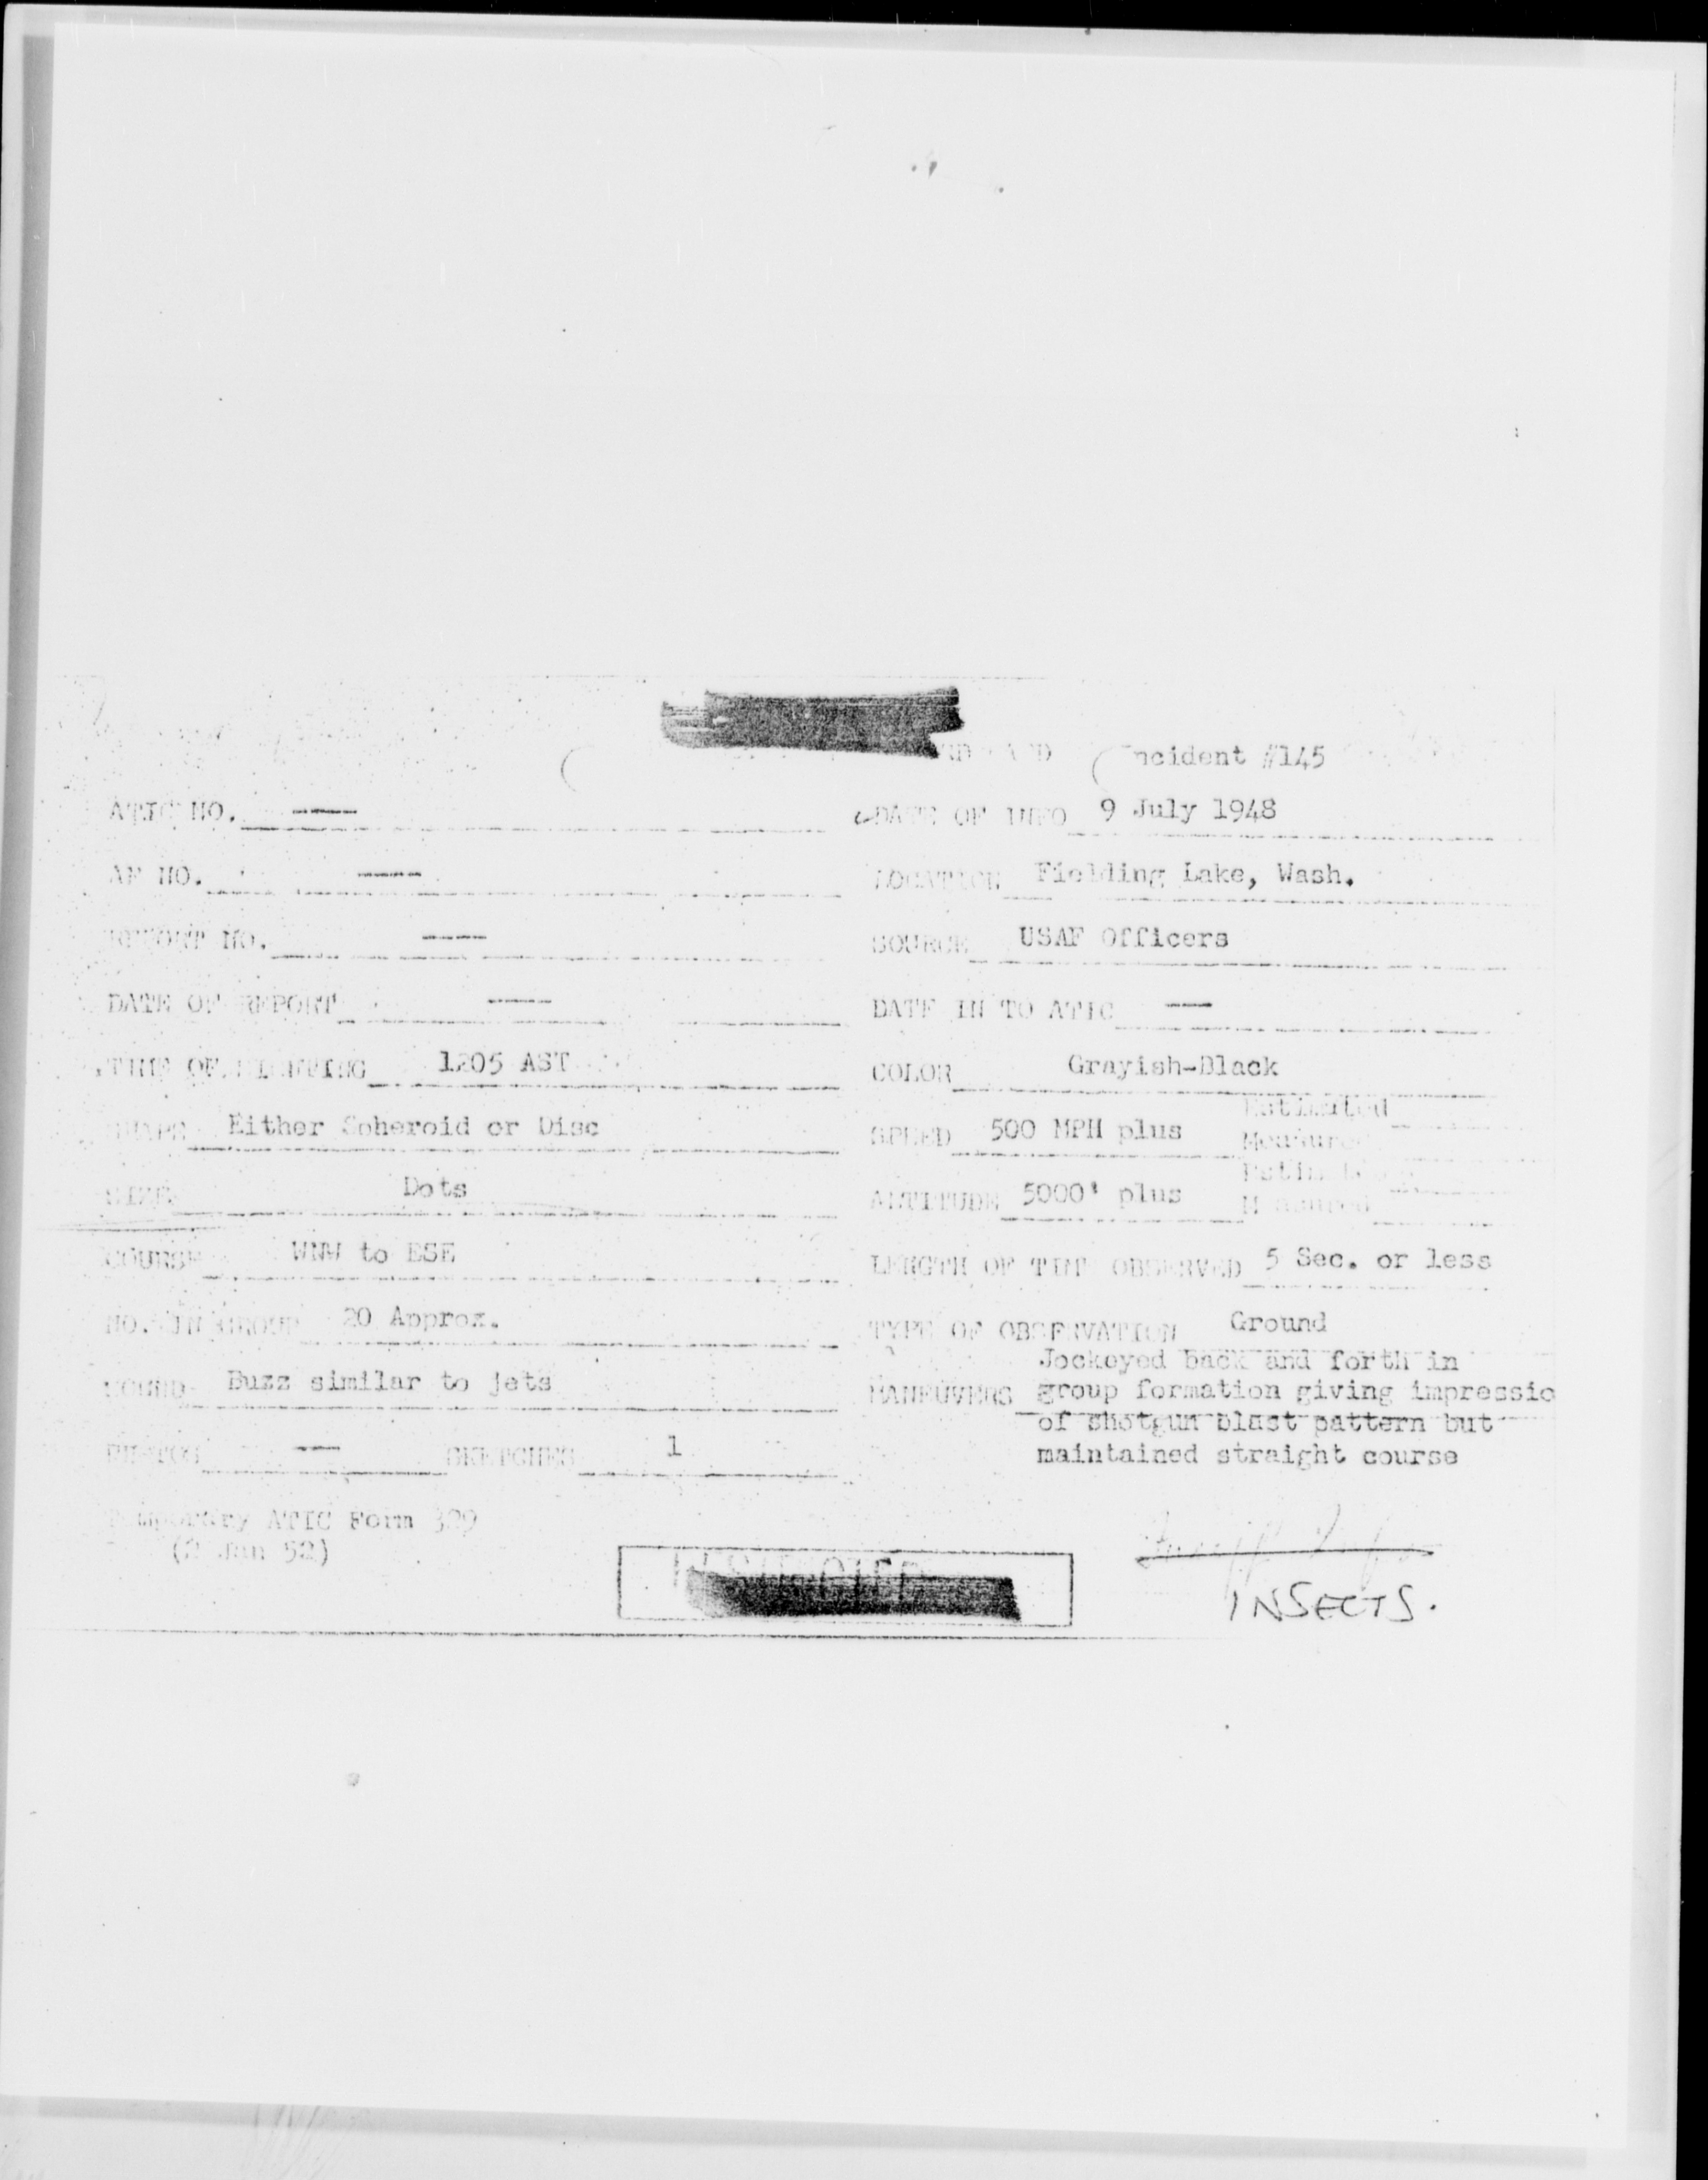 Incident #145
ATIC NO. — DATE OF INFO 9 July 1948
AF NO. — LOCATION Fielding Lake, Wash.
REPORT NO. — SOURCE USAF Officers
DATE OF REPORT — DATE IN TO ATIC —
TIME OF SIGHTING 1205 AST COLOR Grayish-Black
SHAPE Either Spheroid or Disc SPEED 500 MPH plus Estimated
Measured
SIZE Dots ALTITUDE 5000' plus Estimated
Measured
COURSE WNW to ESE LENGTH OF TIME OBSERVED 5 Sec. or less
NO. IN GROUP 20 Approx. TYPE OF OBSERVATION Ground
SOUND Buzz similar to jets MANEUVERS Jockeyed back and forth in
group formation giving impressio
of shotgun blast pattern but
maintained straight course
PHOTOS — SKETCHES 1
Temporary ATIC Form 329
(2 Jan 52)
RESTRICTED
INSECTS.